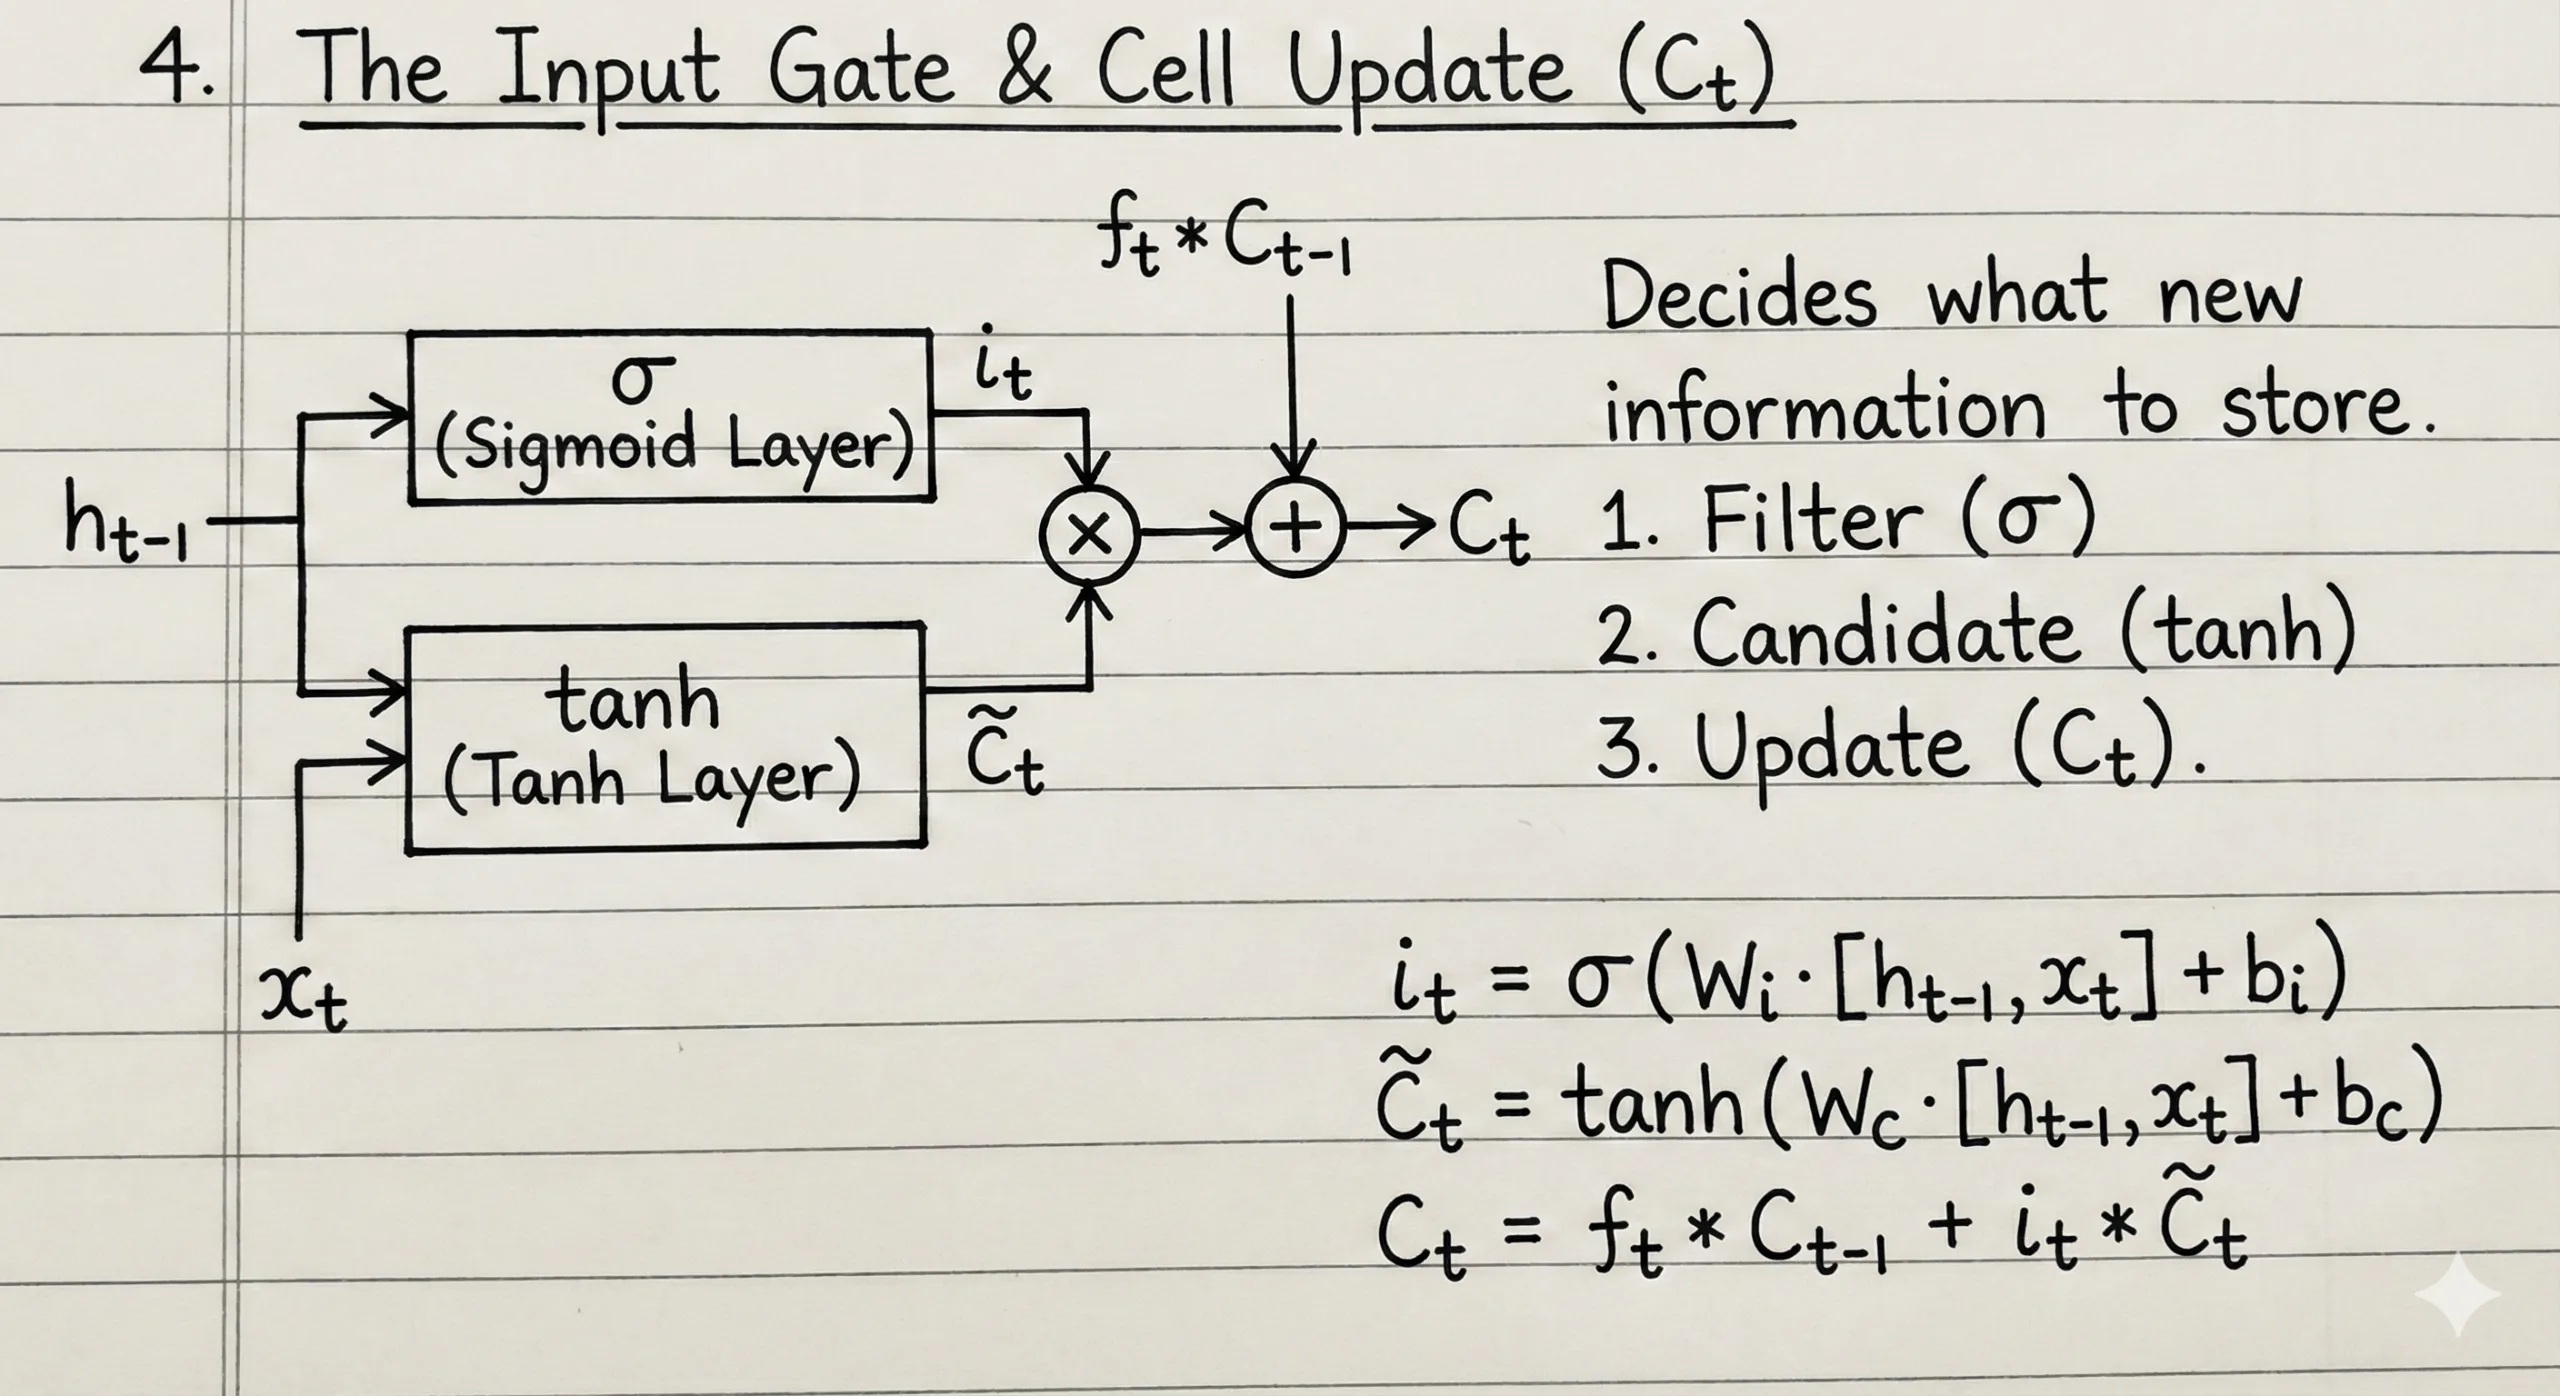 4. The Input Gate & Cell Update (Cₜ)
fₜ * Cₜ₋₁
σ
(Sigmoid Layer)
iₜ
hₜ₋₁
×
+
Cₜ
tanh
(Tanh Layer)
C̃ₜ
xₜ
Decides what new
information to store.
1. Filter (σ)
2. Candidate (tanh)
3. Update (Cₜ).
iₜ = σ(Wᵢ · [hₜ₋₁, xₜ] + bᵢ)
C̃ₜ = tanh(W_c · [hₜ₋₁, xₜ] + b_c)
Cₜ = fₜ * Cₜ₋₁ + iₜ * C̃ₜ